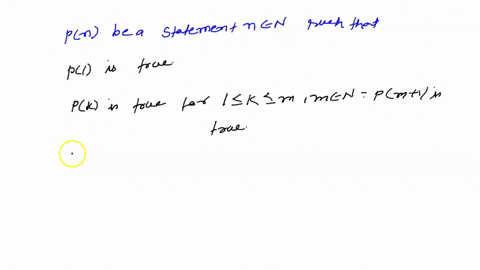 p(n) be a statement n∈N such that
p(1) is true
P(k) is true for 1≤K≤m, m∈N = P(m+1) is
true